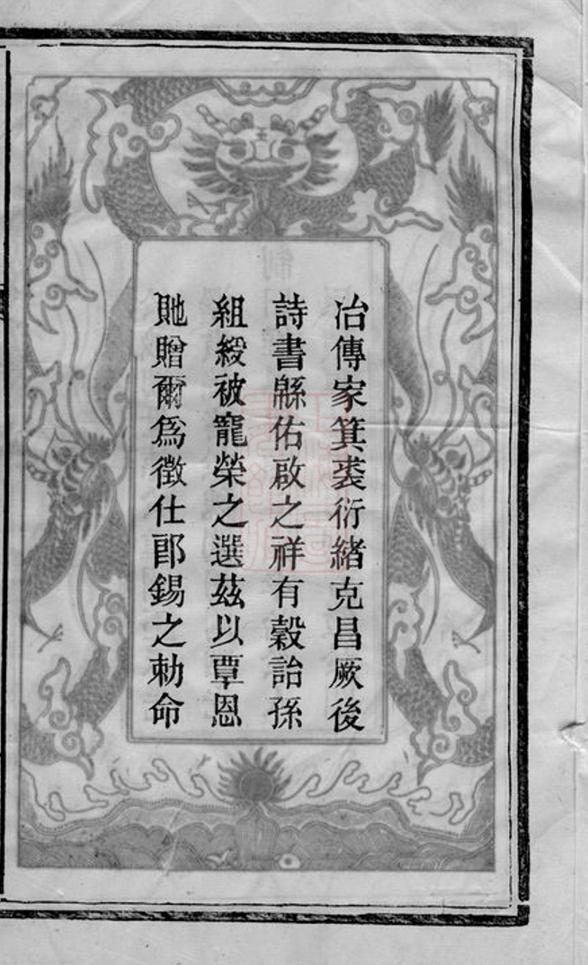 冶傳家箕裘衍緒克昌厥後
詩書緜佑啟之祥有穀詒孫
組綬被寵榮之選兹以覃恩
貤贈爾爲徵仕郎錫之勅命